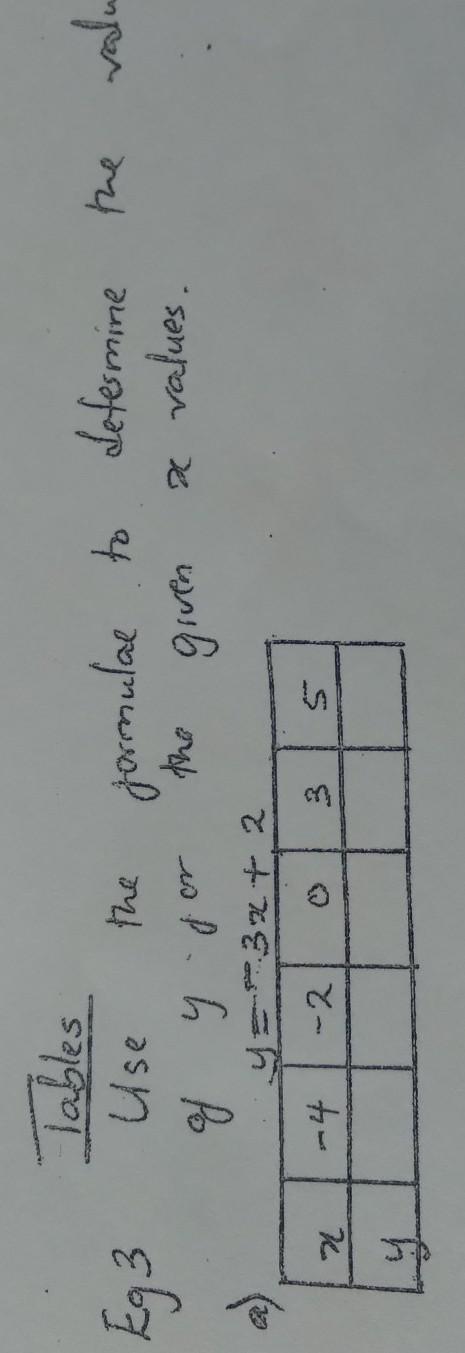 Tables
Eg 3 Use the formulae to determine the valu
of y for the given x values.
a) y = -3x + 2
x -4 -2 0 3 5
y